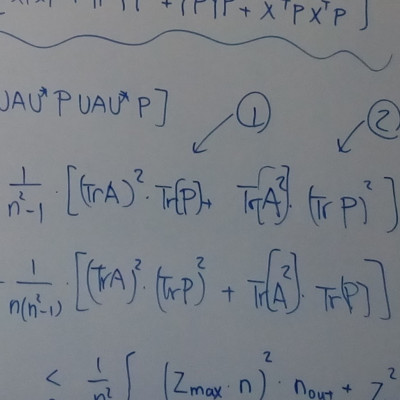 + X^T P X^T P ]
UAU* P UAU* P ]
① ②
1/(n²-1) · [ (TrA)² · Tr[P] + Tr[A²] · (Tr P)² ]
- 1/(n(n²-1)) · [ (TrA)² · (TrP)² + Tr[A²] · Tr[P] ]
< 1/n² [ (Zmax · n)² · nout + Z²